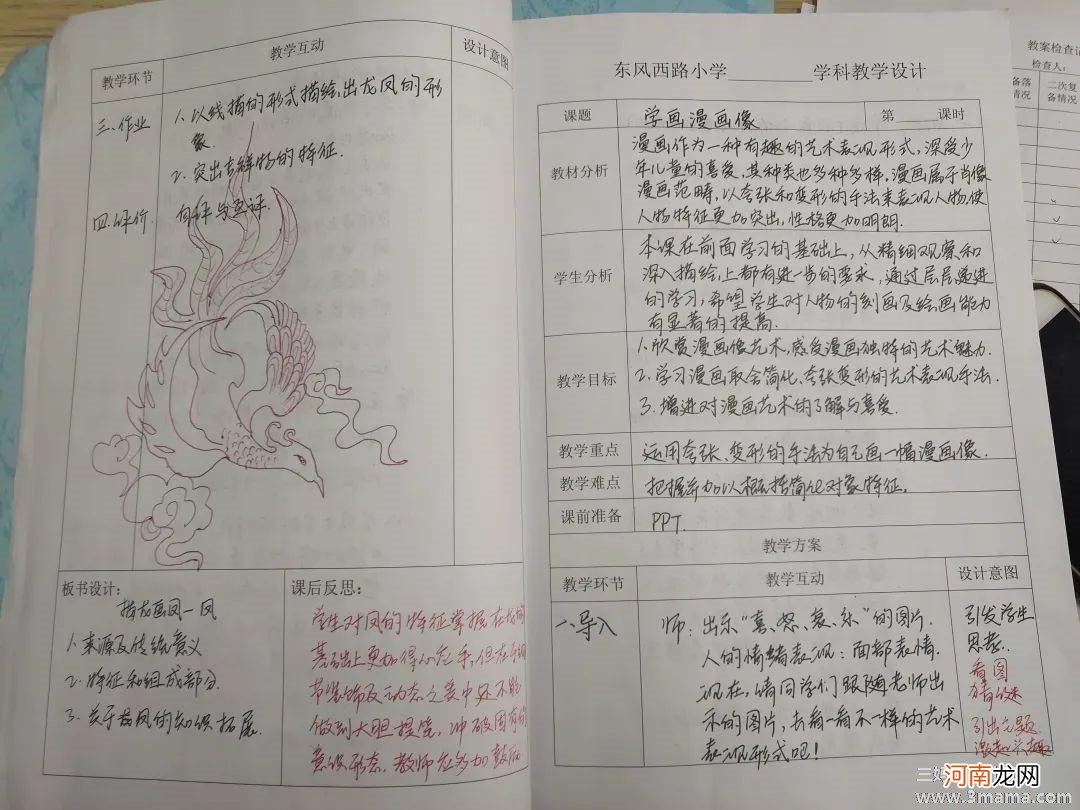 教学环节
教学互动
设计意图
三、作业
1. 以线描的形式描绘出龙凤的形
象.
2. 突出吉祥物的特征.
四、评价
自评与互评.
板书设计:
描龙画凤—凤
1. 来源及传统意义
2. 特征和组成部分.
3. 关于凤的知识拓展.
课后反思:
学生对凤的特征掌握在龙的
基础上更加得心应手,但在
节装饰及动态之美中还不能
做到大胆提笔,冲破固有的
意识形态.教师应多加鼓励
东风西路小学 学科教学设计
课题
学画漫画像
第 课时
教材分析
漫画作为一种有趣的艺术表现形式,深受少
年儿童的喜爱,其种类也多种多样,漫画属于肖像
漫画范畴,以夸张和变形的手法来表现人物,使
人物特征更加突出,性格更加明朗.
学生分析
本课在前面学习的基础上,从精细观察和
深入描绘上都有进一步的要求,通过层层递进
的学习,希望学生对人物的刻画及绘画能力
有显著的提高.
教学目标
1. 欣赏漫画像艺术,感受漫画独特的艺术魅力.
2. 学习漫画取舍简化、夸张变形的艺术表现手法.
3. 增进对漫画艺术的了解与喜爱.
教学重点
运用夸张、变形的手法为自己画一幅漫画像.
教学难点
把握并加以概括简化对象特征。
课前准备
PPT.
教学方案
教学环节
教学互动
设计意图
一、导入
师:出示“喜、怒、哀、乐”的图片.
人的情绪表现:面部表情.
现在,请同学们跟随老师出
示的图片,去看一看不一样的艺术
表现形式吧!
引发学生
思考.
看图
引出主题
激起兴趣
教案检查
检查人:
备落
情况
二次复
备情况
河南龙网
www.3mama.com